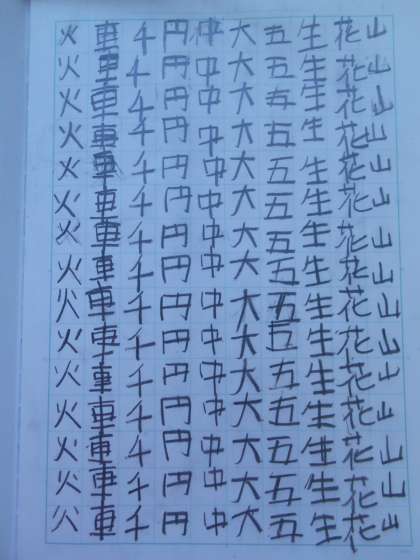 山山山山山山山山山山山山山山山
花花花花花花花花花花花花花花花
生生生生生生生生生生生生生生生
五五五五五五五五五五五五五五五
大大大大大大大大大大大大大大大
中中中中中中中中中中中中中中中
円円円円円円円円円円円円円円円
千千千千千千千千千千千千千千千
車車車車車車車車車車車車車車車
火火火火火火火火火火火火火火火